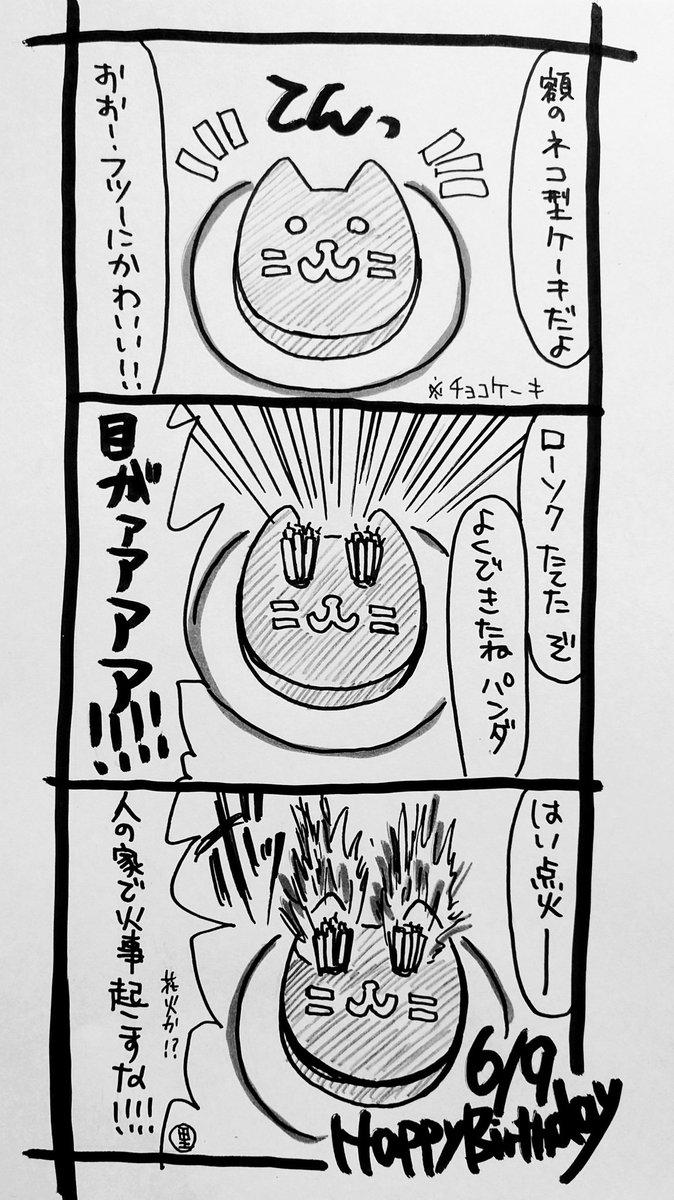 額のネコ型ケーキだよ
てんっ
おおー、フツーにかわいい!!
※チョコケーキ
ローソクたてたぞ
よくできたねパンダ
目がァアアアア!!!!
はい点火ー
人の家で火事起こすな!!!!
6/9
Happy Birthday